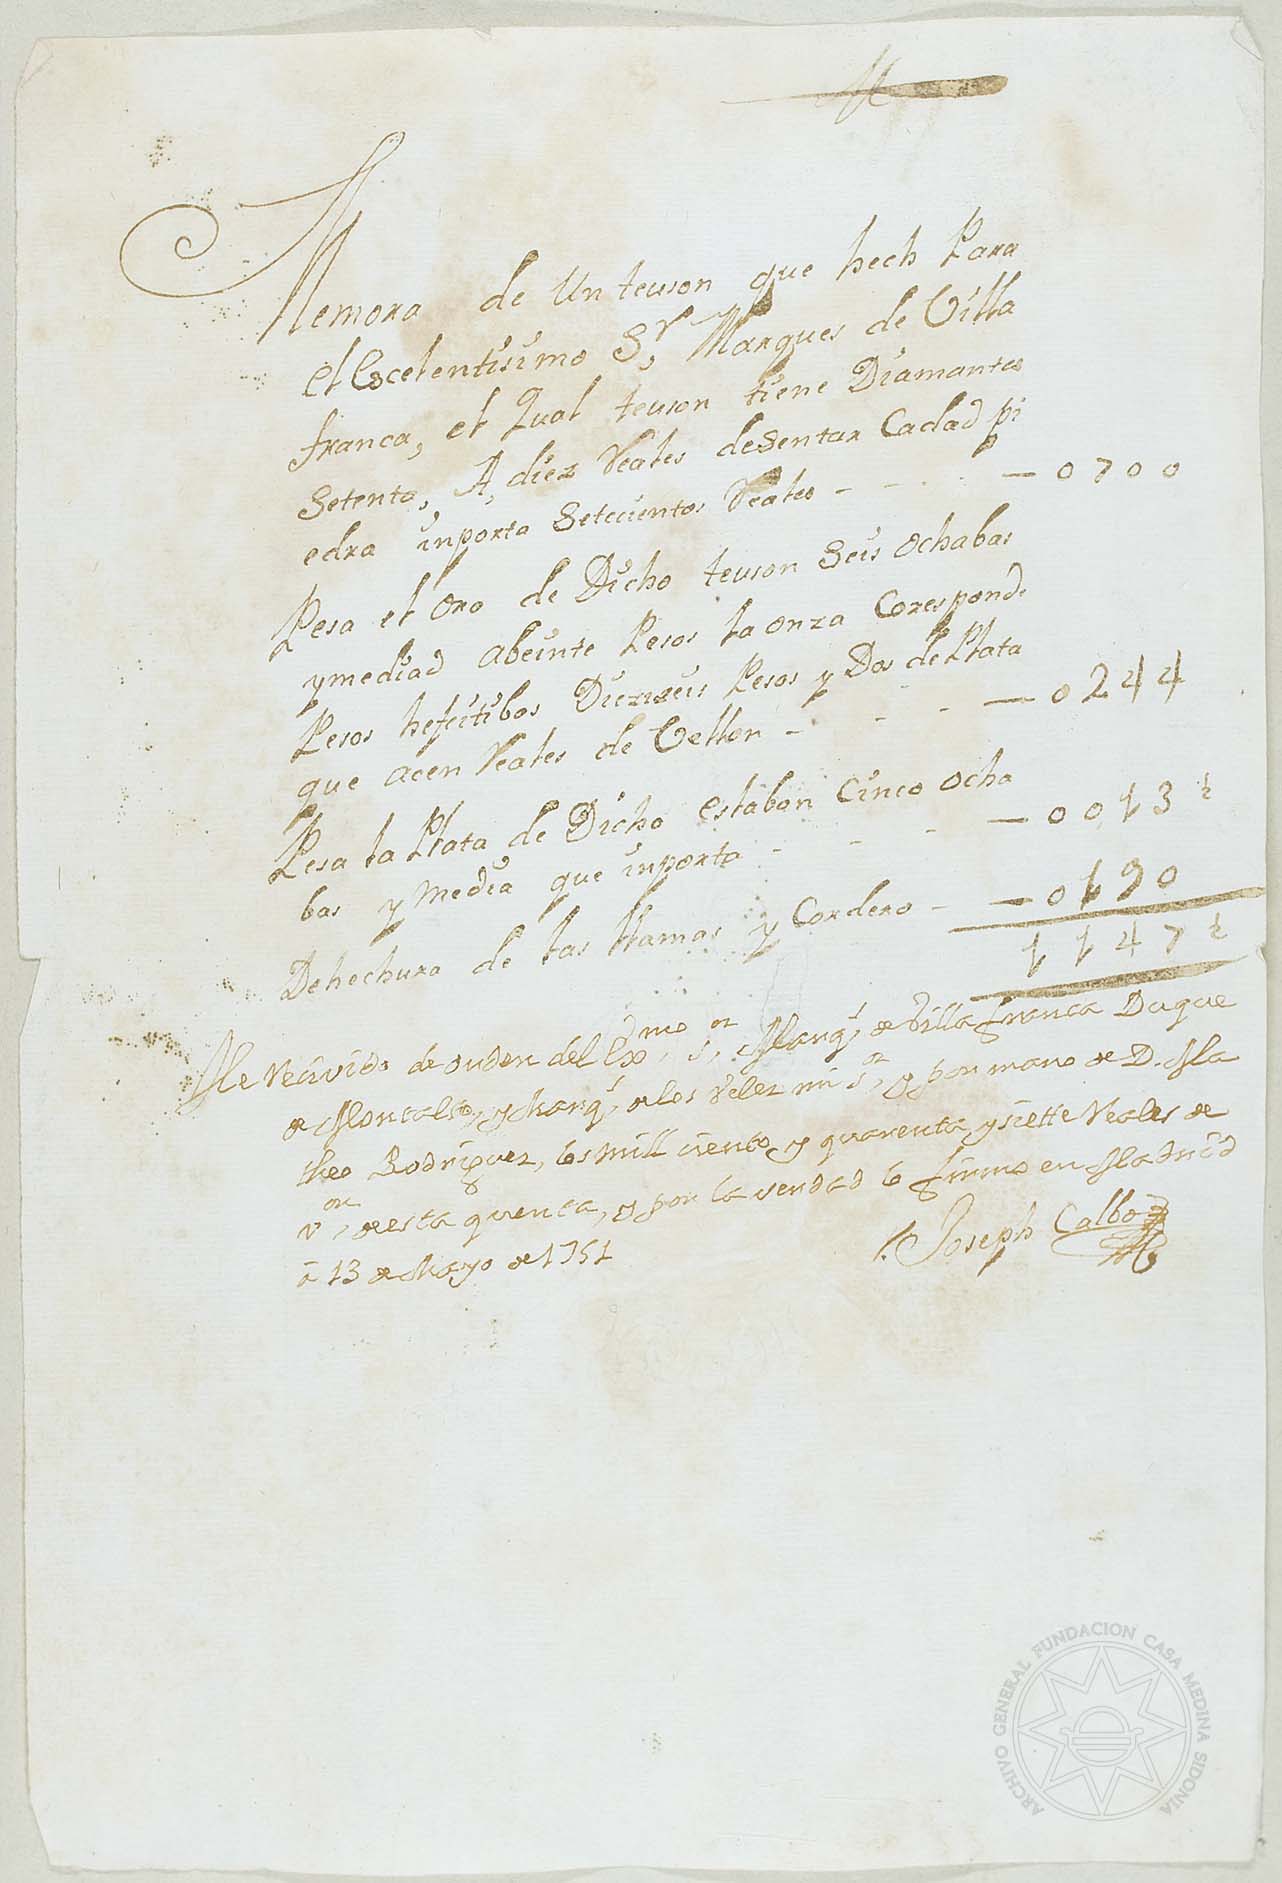 Memora de Un teuson que hech Para
el Escelentisimo Sr, Marques de Villa
franca, el Qual teuson tiene Diamantes
Setenta, A, diez Reales de Sentar Cadad pi
edra inporta Setecientos Reales - - - 0700
Pesa el oro de Dicho teuson Seis ochabas
y mediad abeinte Pesos la onza Corespond.
Pesos hefeitibos Diezizeis Pesos y Dos de Plata
que acen Reales de Vellon - - - - 0244
Pesa la Plata de Dicho eslabon Cinco ocha
bas y media que inporta - - - - 0013 ½
De hechura de las llamas y Cordero - - 0190
1147 ½
He Recivido de orden del Exmo, Sor, Marqs, de Villafranca Duque
de Montalto, y Marqs, de los Velez mi Sor, y por mano de D. Ma
theo Rodriguez, los mill ciento y quarenta y siette Reales de
von, de esta quenta, y por la verdad lo firmo en Madrid
a 13 de Mayo de 1751
Joseph Calbo
ARCHIVO GENERAL FUNDACION CASA MEDINA SIDONIA